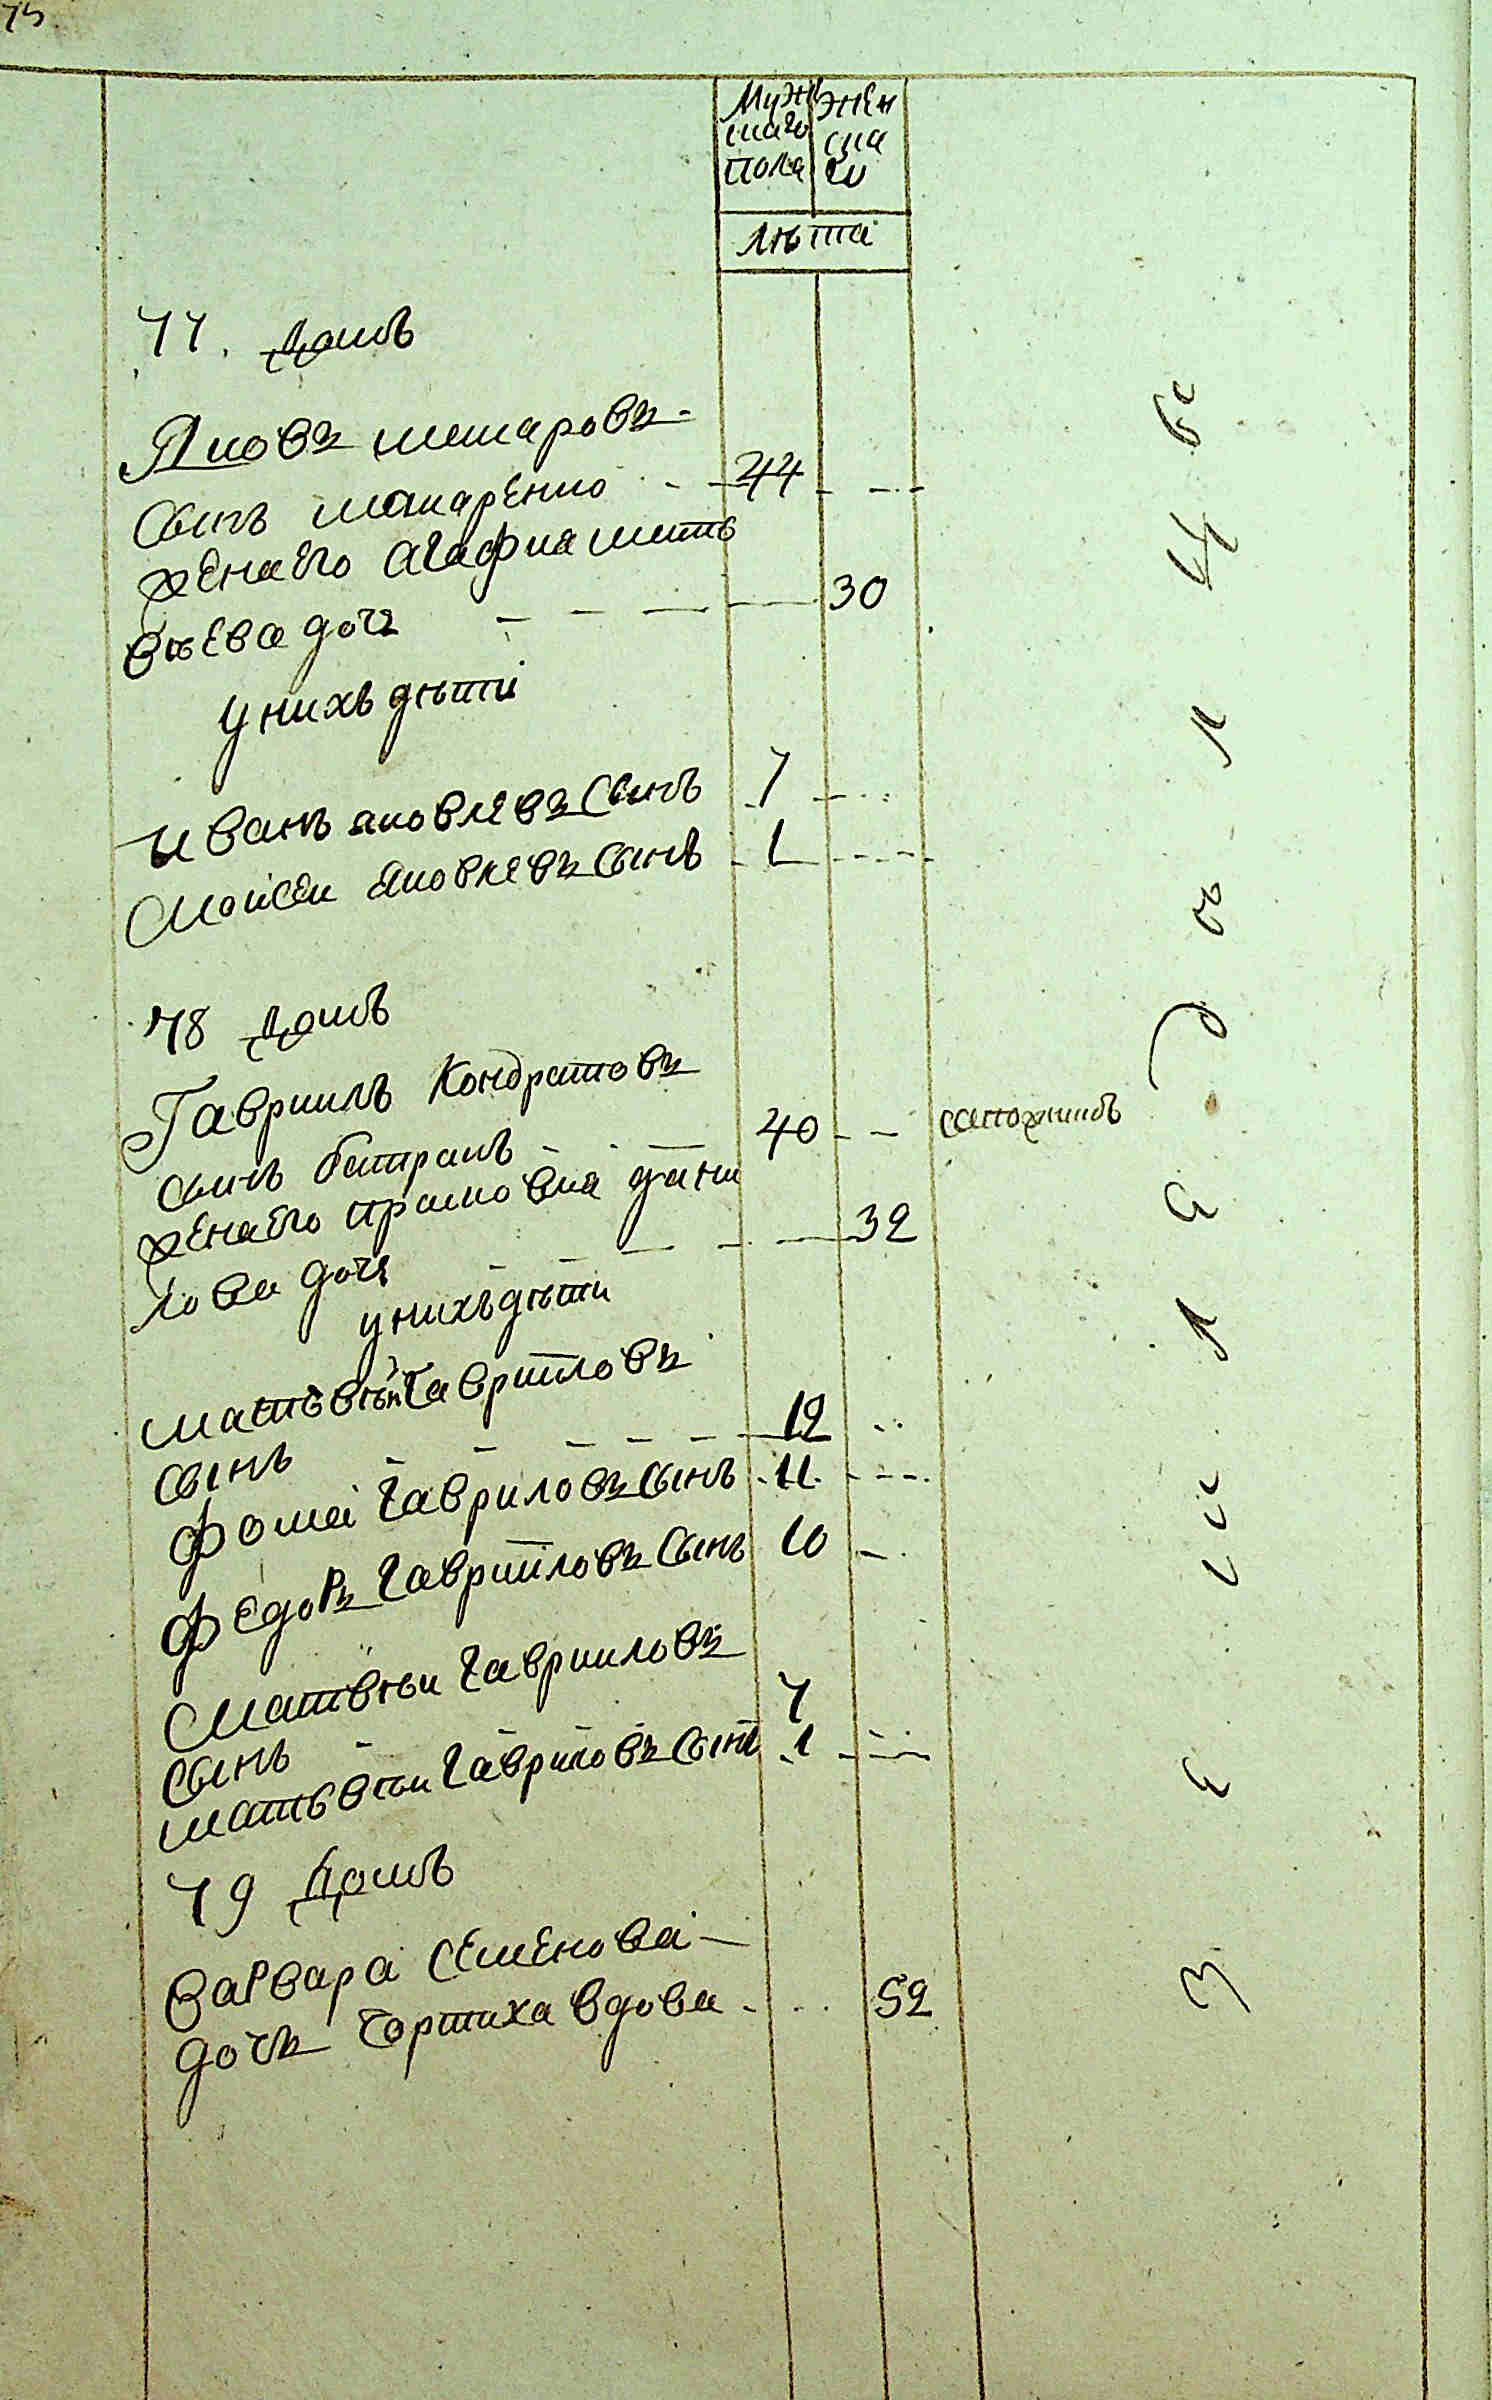 75
Муж
скаго
пола
жен
ска
го
лѣта
77. домъ
Яковъ макаровъ
сынъ макаренко 44
жена его агафиа матъ
вѣева дочь 30
у нихъ дѣти
иванъ яковлевъ сынъ 7
Моисеи яковлевъ сынъ 1
78 домъ
Гавриилъ Кондратовъ
сынъ батракъ 40 сапожникъ
жена его дани
лова дочь 32
у нихъ дѣти
матъвѣй Гавриловъ
сынъ 12
фома гавриловъ сынъ 11
федоръ гавриловъ сынъ 10
Матвѣи гаврииловъ
сынъ 7
матъвѣи гавриловъ сынъ 1
79 домъ
варвара семенова
дочь Чортиха вдова 52